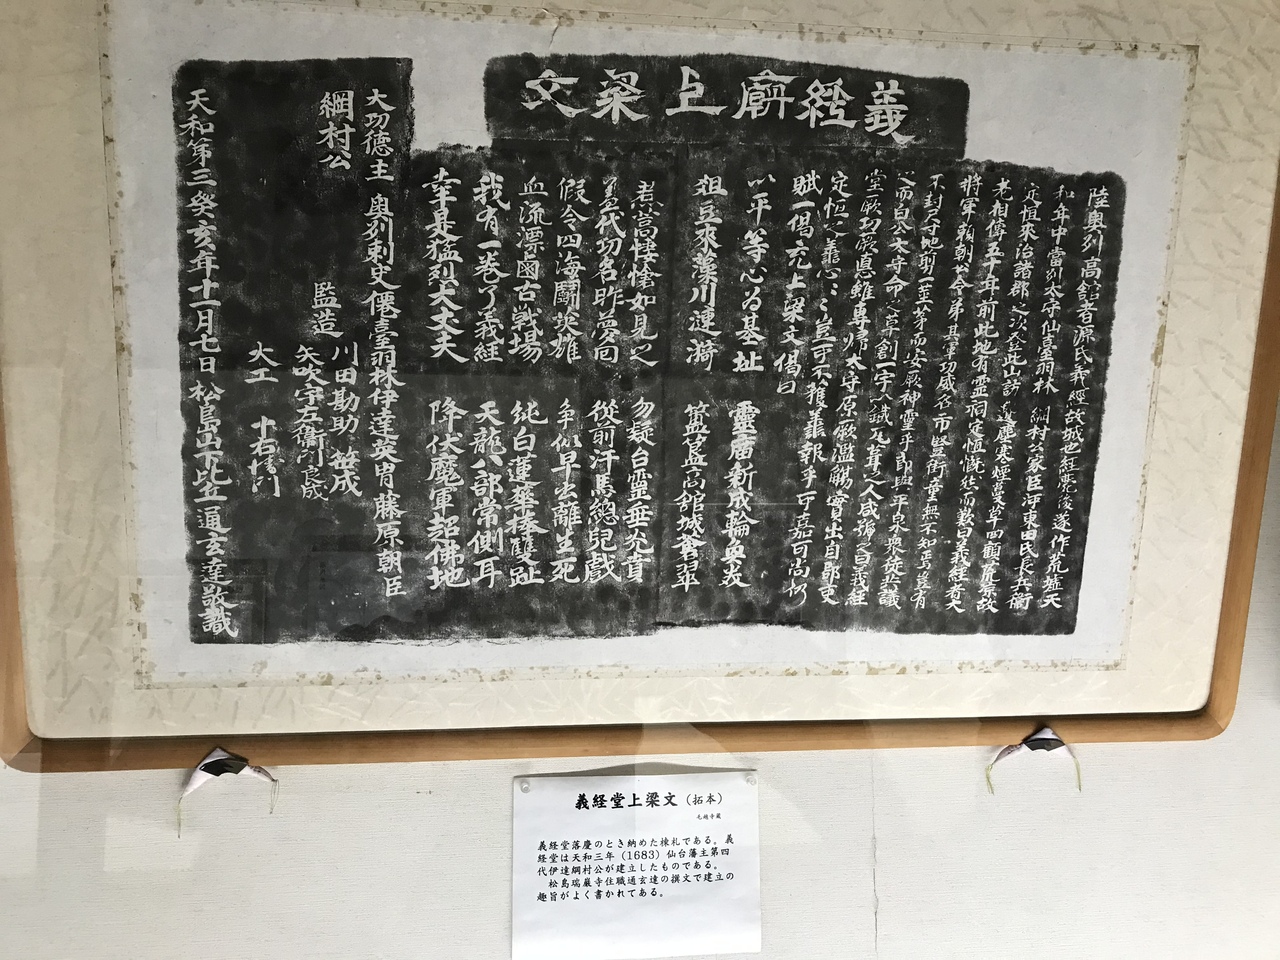 義經廟上梁文
陸奥列高舘者源氏義經故城也経乱後遂作荒墟天
和年中當列太守仙臺羽林 綱村公家臣河東田氏長兵衛
定恒來治諸郡之次登此山訪遺塵寒煙蔓草四顧荒涼故
老相傳五十年前此地有靈祠定恒慨然而歎曰義經者大
將軍頼朝公令弟其軍功威名市豎街童無不知焉豈有
不封尺寸地剪一茎茅而安厥神靈乎即與平泉衆徒共議
之而白公太守命之草創一宇
堂厥功厥悳雖專歸太守原厥濫觴實出自郡吏
定恒之義心之豈可不推義報乎可嘉可尚仍
賦一偈充上梁文偈曰
以平等心为基址 靈庿新成輪奐美
俎豆來藻川漣漪 簋簋高舘城蒼翠
焄蒿悽愴如見之 勿疑台靈垂允肯
蓋代功名昨夢同 從前汗馬總兒戯
假令四海鬪英雄 争似早去離生死
血流漂鹵古戦場 純白蓮華捧雙趾
我有一巻了義経 天龍八部常側耳
幸是猛烈大丈夫 降伏魔軍超佛地
大功德主 奥列刺史僊臺羽林伊達英冑藤原朝臣
綱村公
監造 川田勘助
矢吹宇左衞門良成
大工 十右衛門
天和第三癸亥年十一月七日 松島山下比丘通玄達敬識
義経堂上梁文（拓本）
毛越寺蔵
義経堂落慶のとき納めた棟札である。義
経堂は天和三年（1683）仙台藩主第四
代伊達綱村公が建立したものである。
松島瑞巌寺住職通玄達の撰文で建立の
趣旨がよく書かれてある。